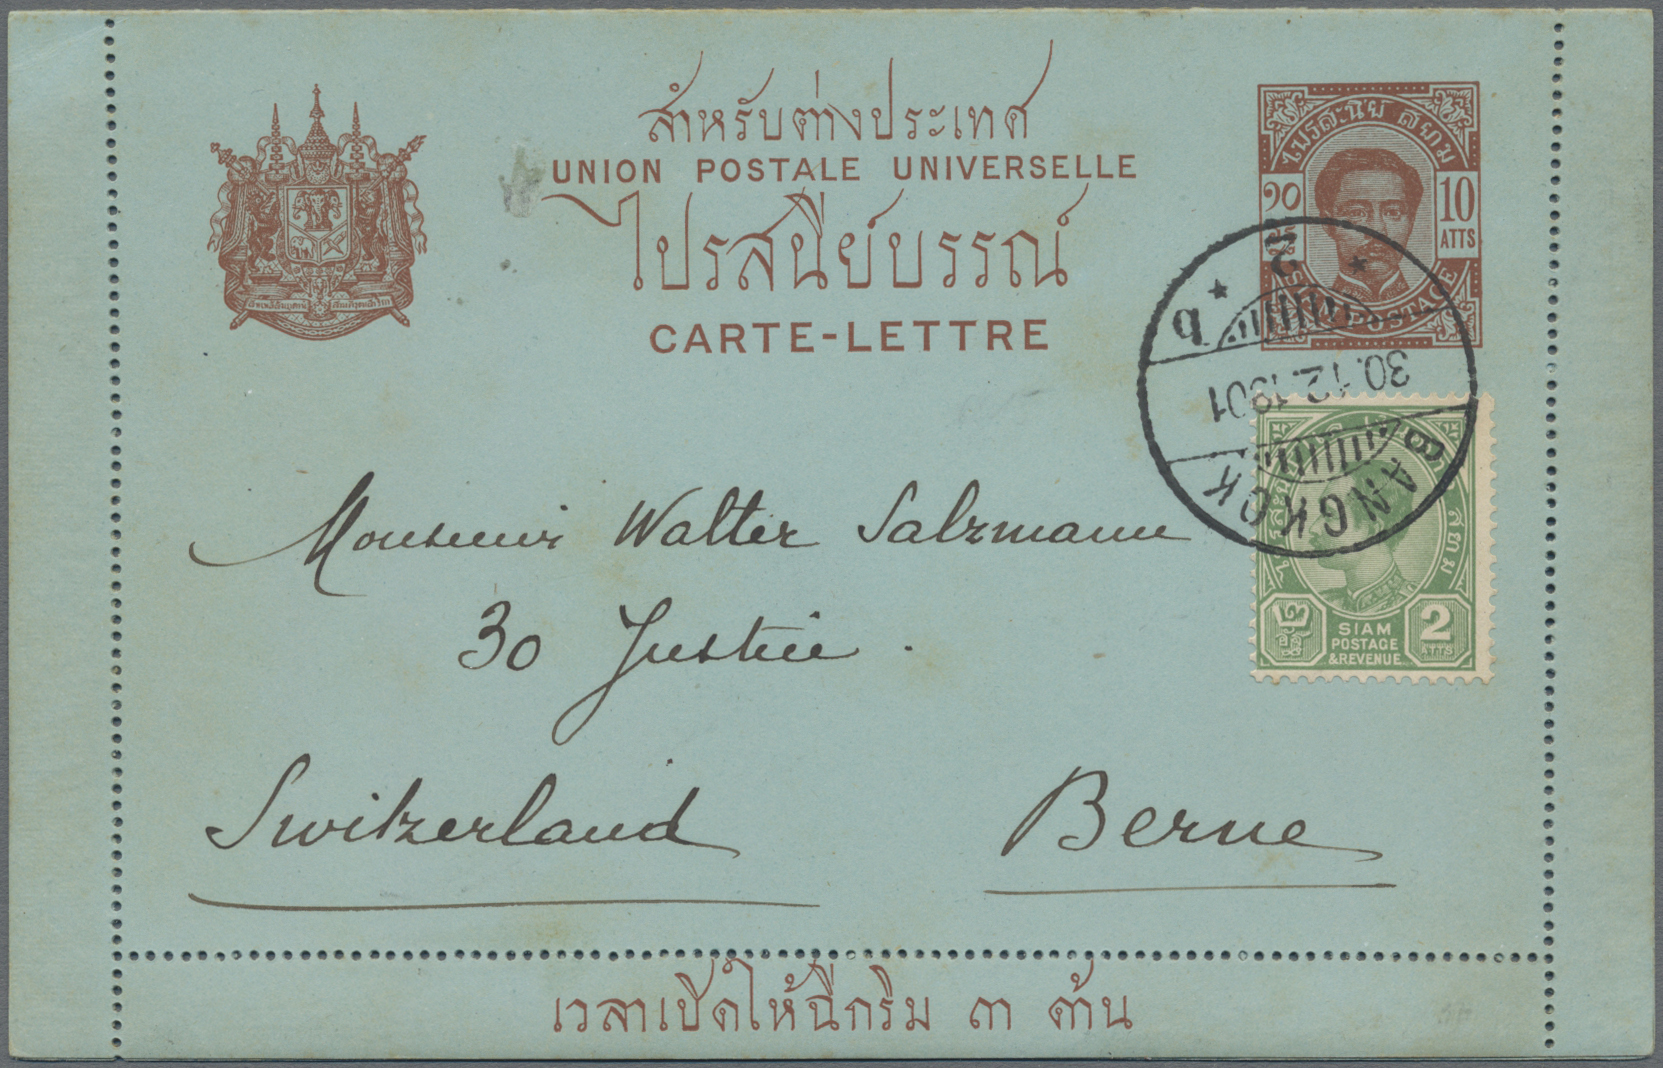 สำหรับต่างประเทศ
UNION POSTALE UNIVERSELLE
ไปรสนีย์บรรณ์
CARTE-LETTRE
ไปรสะนีย์ สยาม
๑๐
10
ATTS
POSTAGE
2
b
30.12.1901
BANGKOK
สยาม
๒
SIAM
POSTAGE
& REVENUE
2
ATTS
Monsieur Walter Salzmann
30 Justice.
Switzerland
Berne
เวลาเปิดให้ฉีกริม ๓ ด้าน